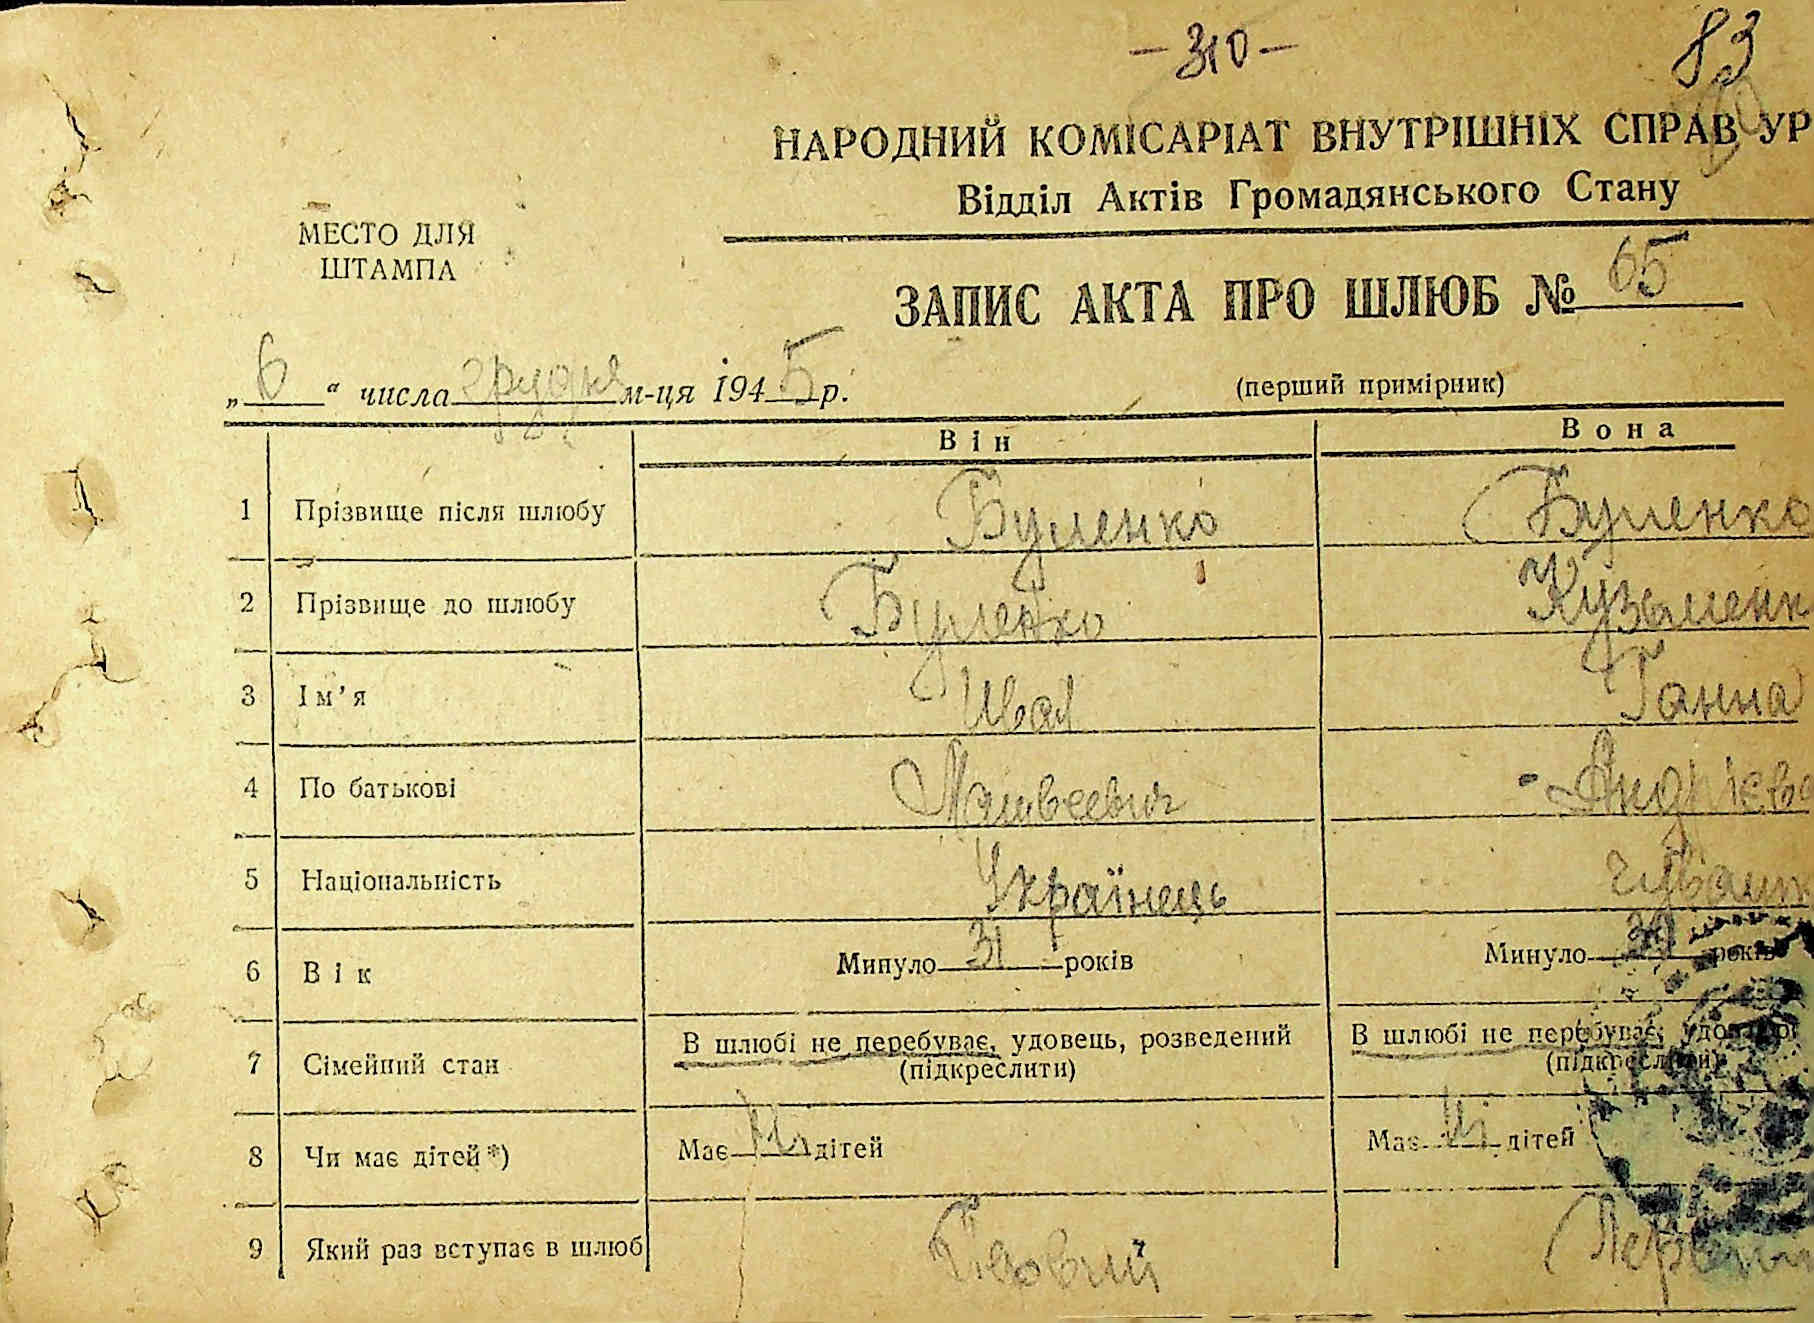 - 310 -
83
НАРОДНИЙ КОМІСАРІАТ ВНУТРІШНІХ СПРАВ УР
Відділ Актів Громадянського Стану
МЕСТО ДЛЯ
ШТАМПА
ЗАПИС АКТА ПРО ШЛЮБ № 65
„6“ числа грудня м-ця 1945 р.
(перший примірник)
Він Вона
1 Прізвище після шлюбу Буленко Буленко
2 Прізвище до шлюбу Буленко Кузьменк
3 Ім’я Иван Ганна
4 По батькові Матвеевич Андрієв
5 Національність Українець
6 Вік Минуло 31 років Минуло років
7 Сімейний стан В шлюбі не перебуває, удовець, розведений В шлюбі не перебуває,
(підкреслити) (підкреслити)
8 Чи має дітей *) Має Ні дітей Має Ні дітей
9 Який раз вступає в шлюб Первий